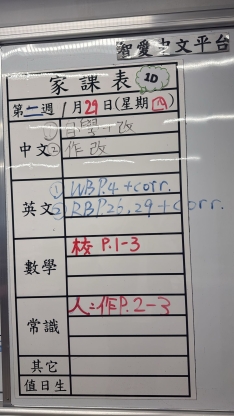 智愛中文平台
家課表 1D
第二週 1月29日(星期四)
中文 ① 自學一改
② 作改
英文 ① WB P.4 + corr.
② RB P.26, 29 + corr.
數學 校 P.1-3
常識 人:作P.2-3
其它
值日生